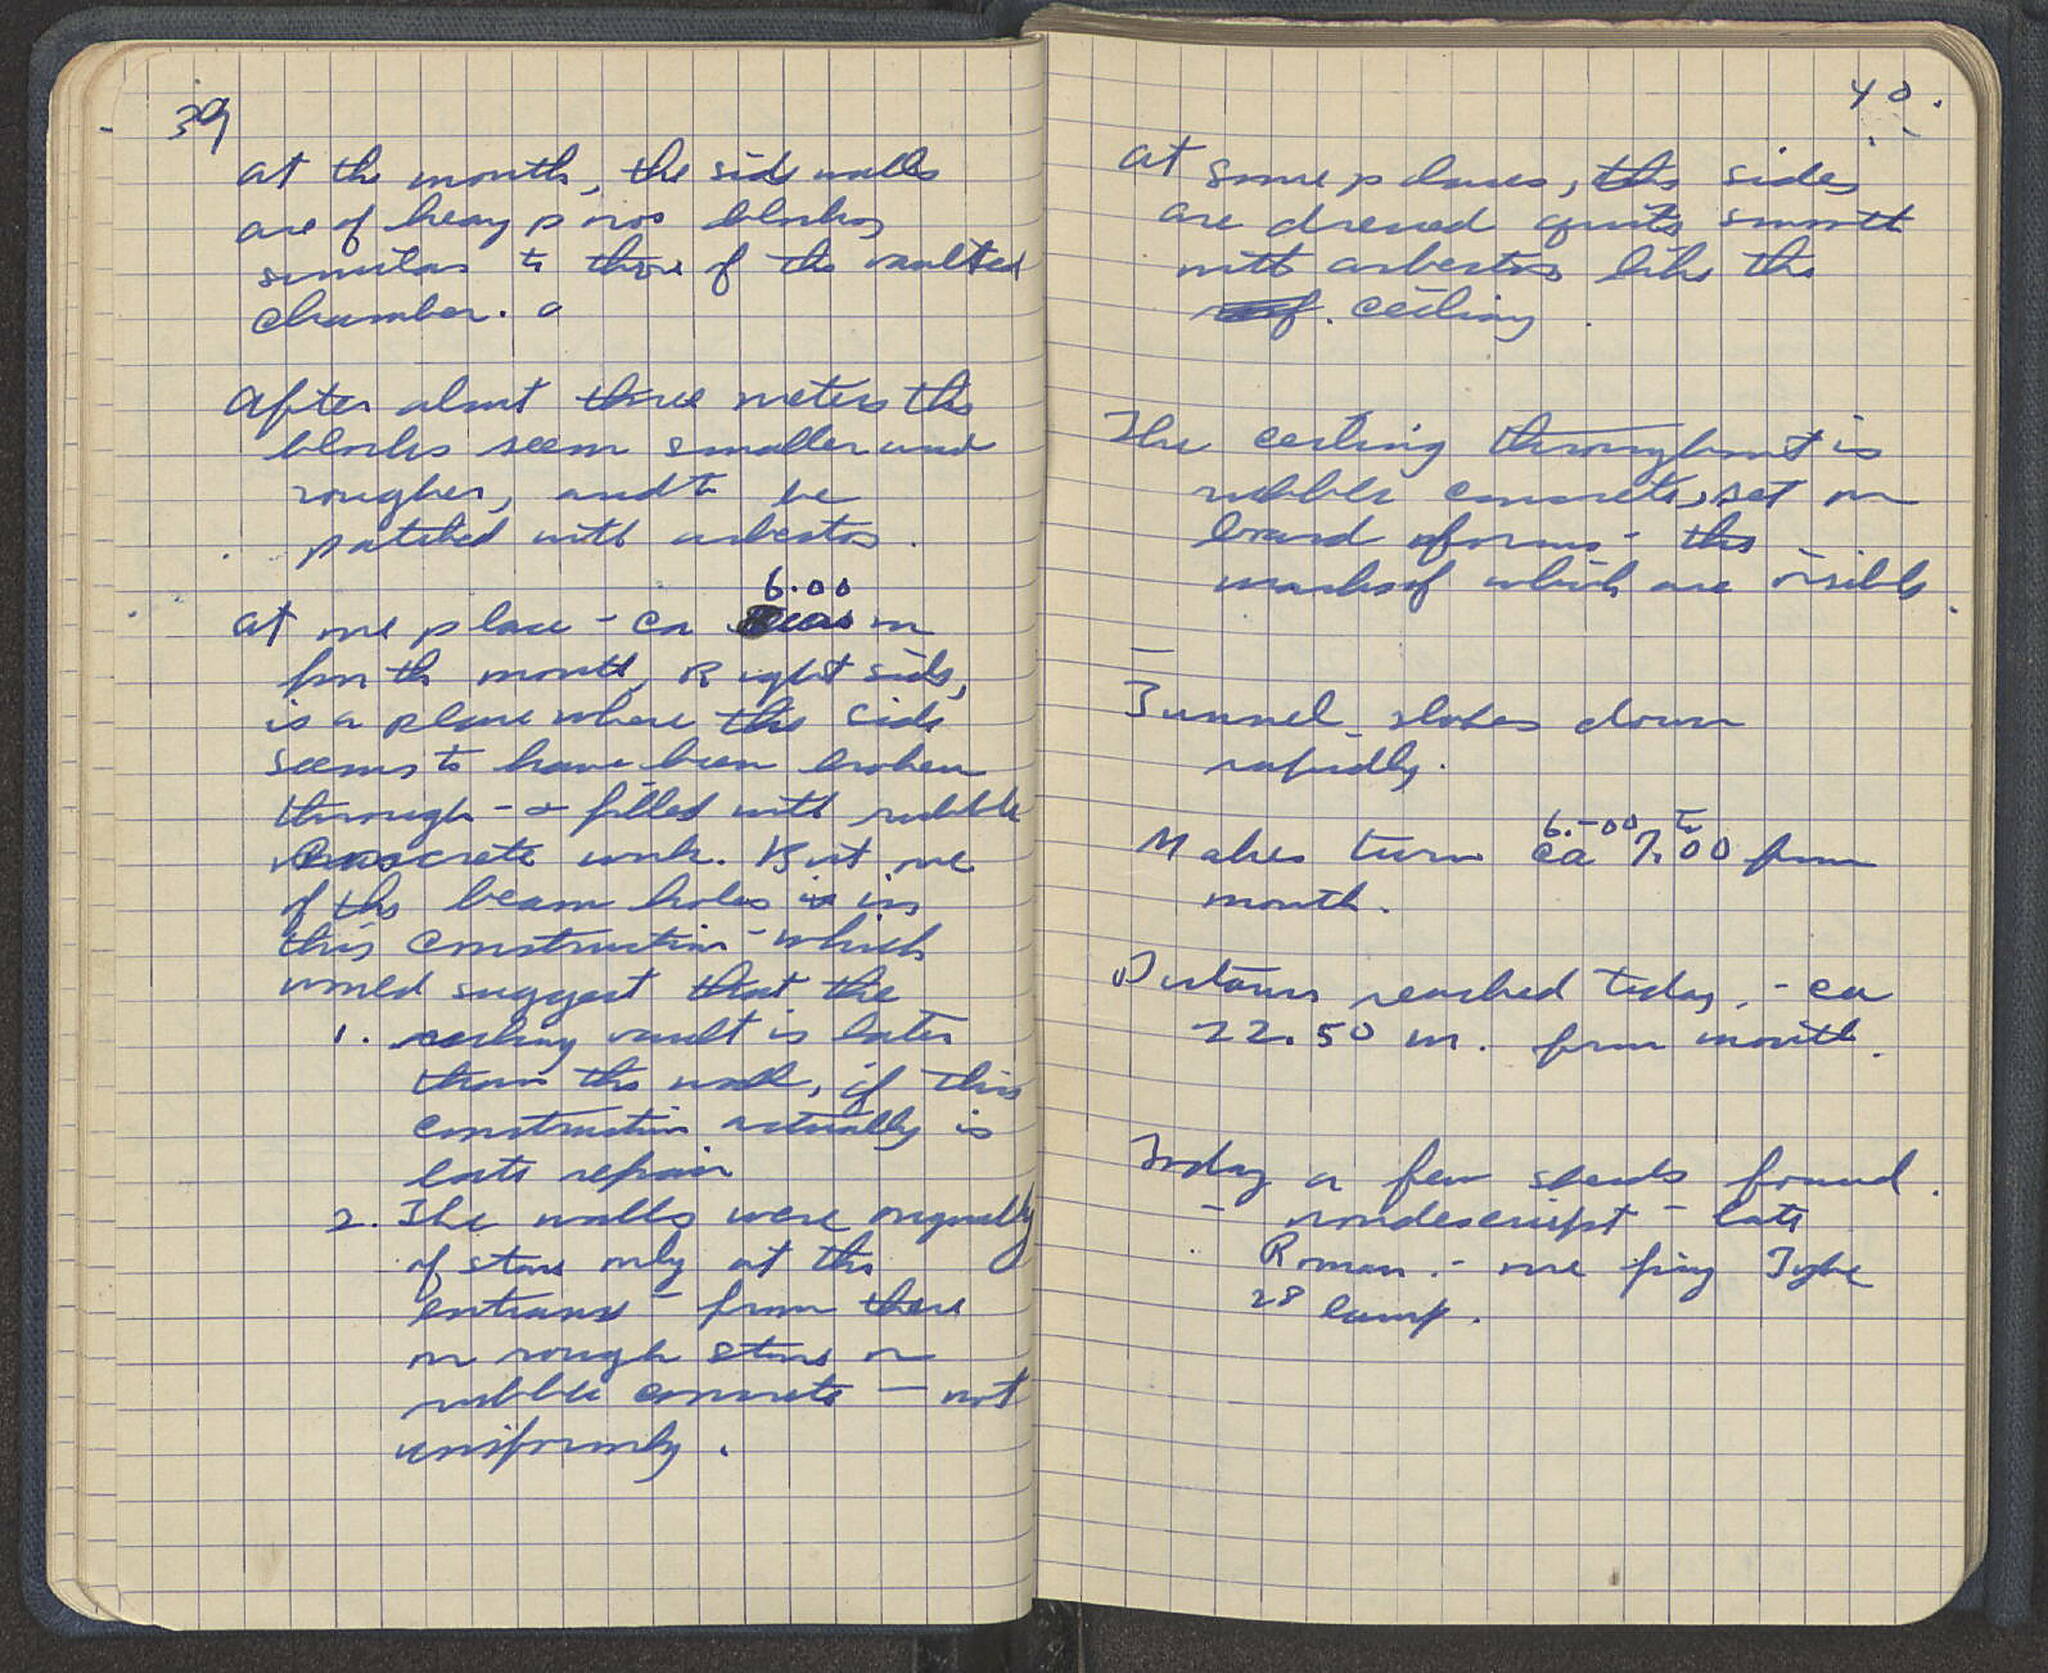 39
At the mouth, the side walls
are of heavy poros blocks
similar to those of the vaulted
chamber.
After about three meters the
blocks seem smaller and
rougher, and to be
patched with asbestos.
6.00
At one place - ca m
from the mouth, Right side,
is a place where the side
seems to have been broken
through - & filled with rubble
concrete work. But one
of the beam holes is in
this construction - which
would suggest that the
1. ceiling vault is later
than the wall, if this
construction actually is
late repair
2. The walls were originally
of stone only at the
entrance - from there
on rough stone or
rubble concrete — not
uniformly.
40.
At some places, the sides
are dressed quite smooth
with asbestos like the
roof. ceiling.
The ceiling throughout is
rubble concrete, set on
board forms - the
marks of which are visible.
Tunnel slopes down
rapidly.
6.-00 to
Makes turn ca 7.00 from
mouth.
Distance reached today, - ca
22.50 m. from mouth.
Today a few sherds found.
- nondescript - late
Roman. - one frag Type
28 lamp.